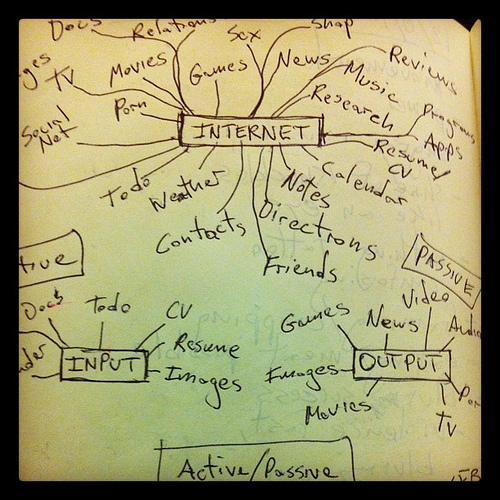 Docs
Relations
Sex
Shop
ges
TV
Movies
Games
News
Music
Reviews
Porn
Research
Programs
Social
Net
INTERNET
Apps
Resume/
CV
Todo
Weather
Notes
Calendar
Contacts
Directions
Friends
tive
PASSIVE
Docs
Todo
CV
Games
News
Video
Audio
INPUT
Resume
Images
OUTPUT
Images
Movies
Por
TV
Active/Passive